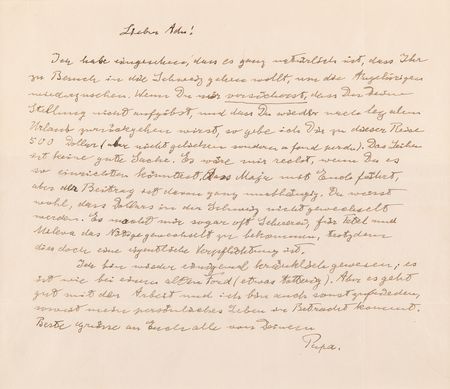 Lieber Adu!
Ich habe eingesehen, dass es ganz natürlich ist, dass Ihr
zu Besuch in die Schweiz gehen wollt, um die Angehörigen
wiederzusehen. Wenn Du mir versicherst, dass Du Deine
Stellung nicht aufgibst, und dass Du wieder nach legalem
Urlaub zurückgehen wirst, so gebe ich Dir zu dieser Reise
500 Dollars (aber nicht geliehen sondern a fond perdu). Das Leihen
ist keine gute Sache. Es wäre mir recht, wenn Du es
so einrichten könntest, dass Maja mit Euch fährt,
aber der Beitrag ist davon ganz unabhängig. Du weisst
wohl, dass Dollars in der Schweiz nicht gewechselt
werden. Es macht mir sogar oft Schwierigk. für Tetel und
Mileva das Nötige gewechselt zu bekommen, trotzdem
dies doch eine eigentliche Verpflichtung ist.
Ich bin wieder einigemal kränklich gewesen; es
ist wie bei einem alten Ford (etwas). Aber es geht
gut mit der Arbeit und ich bin auch sonst zufrieden,
soweit mein persönliches Leben in Betracht kommt.
Beste Grüsse an Euch alle von Deinem
Papa.